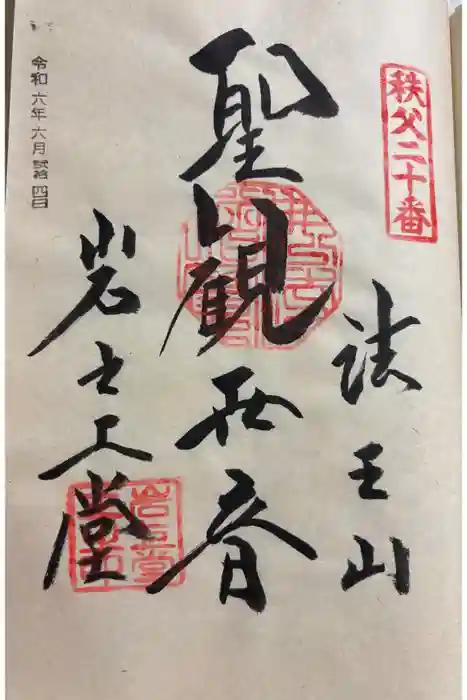 秩父二十番
法王山
聖観世音
岩之上堂
令和六年六月弐拾四日